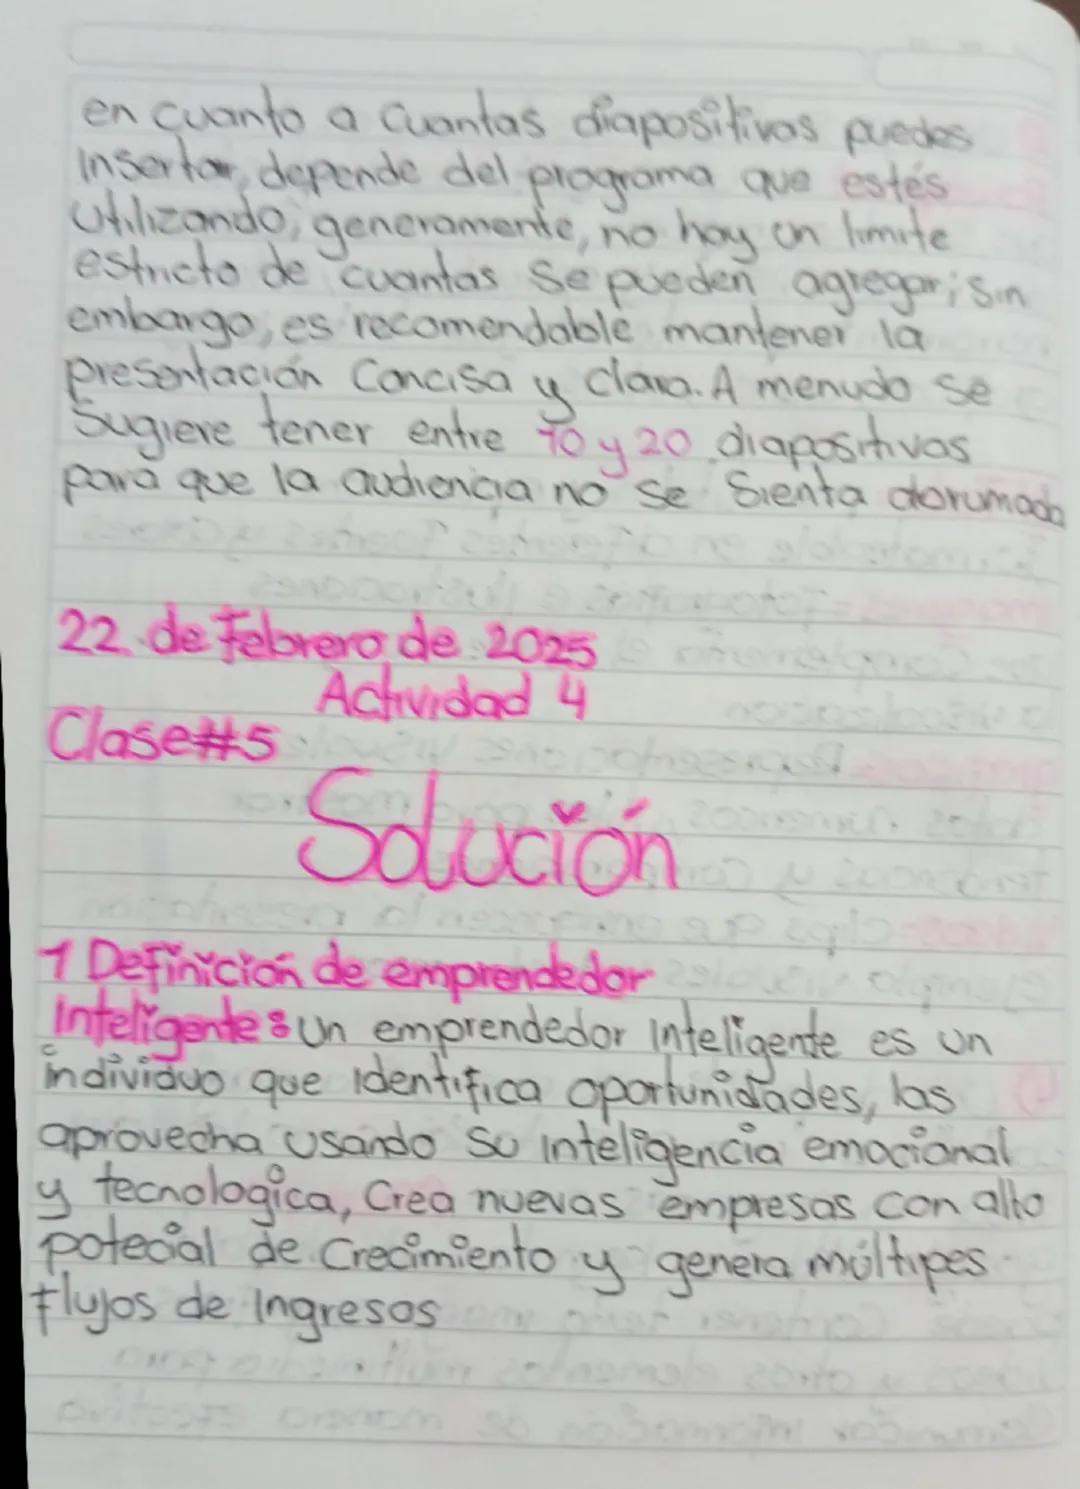 en cuanto a cuantas diapositivas puedes
insertar, depende del programa que estés
utilizando, generamente, no hay un limite
estricto de cuantas se pueden agregar; sin
embargo, es recomendable mantener la
presentación concisa y clara. A menudo se
sugiere tener entre 10 y 20 diapositivas
para que la audiencia no se sienta
22 de Febrero de 2025
Actividad 4
Clase#5
Solución
1 Definición de emprendedor
Inteligente: Un emprendedor inteligente es un
individuo que identifica oportunidades, las
aprovecha usando su inteligencia emocional
y tecnologica, Crea nuevas empresas con alto
potecial de Crecimiento y genera múltipes
flujos de Ingresos